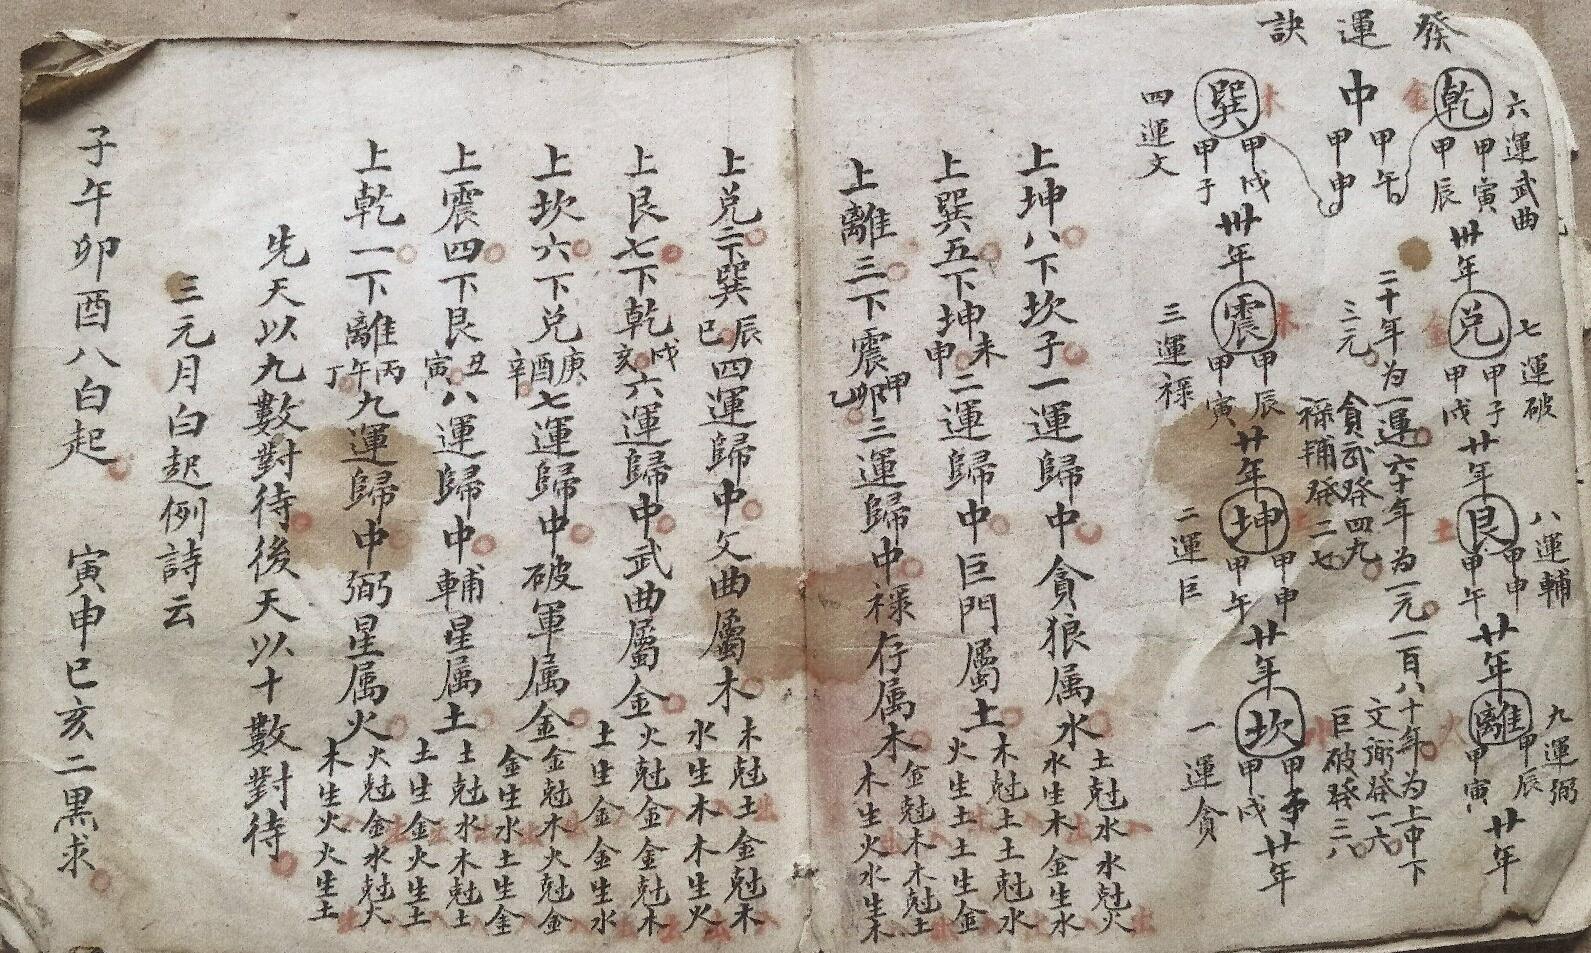 發運訣
六運武曲
乾 金
甲寅
甲辰
卅年
七運破
兌 金
甲子
甲戌
廿年
八運輔
艮 土
甲申
甲午
廿年
九運弼
離 火
甲辰
甲寅
廿年
中
甲午
甲申
二十年为一運六十年为一元一百八十年为上中下
三元
貪武發四九
文弼發一六
祿輔發二七
巨破發三八
四運文
巽 木
甲戌
甲子
卅年
三運祿
震 木
甲辰
甲寅
廿年
二運巨
坤 土
甲申
甲午
廿年
一運貪
坎 水
甲子
甲戌
廿年
上坤八下坎子一運歸中貪狼属水
土尅水水尅火
水生木金生水
上巽五下坤未申二運歸中巨門屬土
木尅土土尅水
火生土土生金
上離三下震甲卯乙三運歸中祿存属木
金尅木木尅土
木生火水生木
上兌二下巽辰巳四運歸中文曲屬木
木尅土金尅木
水生木木生火
上艮七下乾戌亥六運歸中武曲屬金
火尅金金尅木
土生金金生水
上坎六下兌庚酉辛七運歸中破軍属金
金尅木火尅金
金生水土生金
上震四下艮丑寅八運歸中輔星属土
土尅水木尅土
土生金火生土
上乾一下離丙午丁九運歸中弼星属火
火尅金水尅火
木生火火生土
先天以九數對待後天以十數對待
三元月白起例詩云
子午卯酉八白起 寅申巳亥二黑求